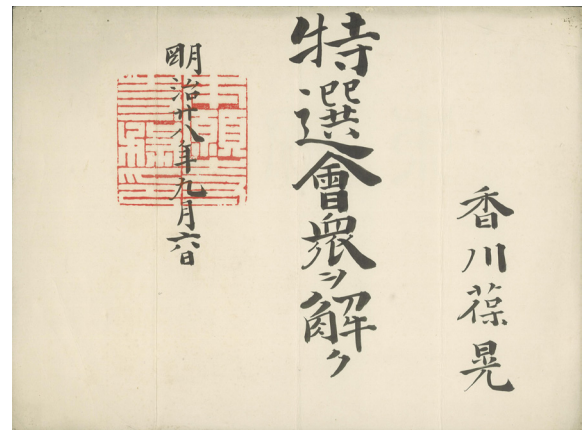 香川葆晃
特選會衆ヲ解ク
明治廿八年九月六日
本願寺